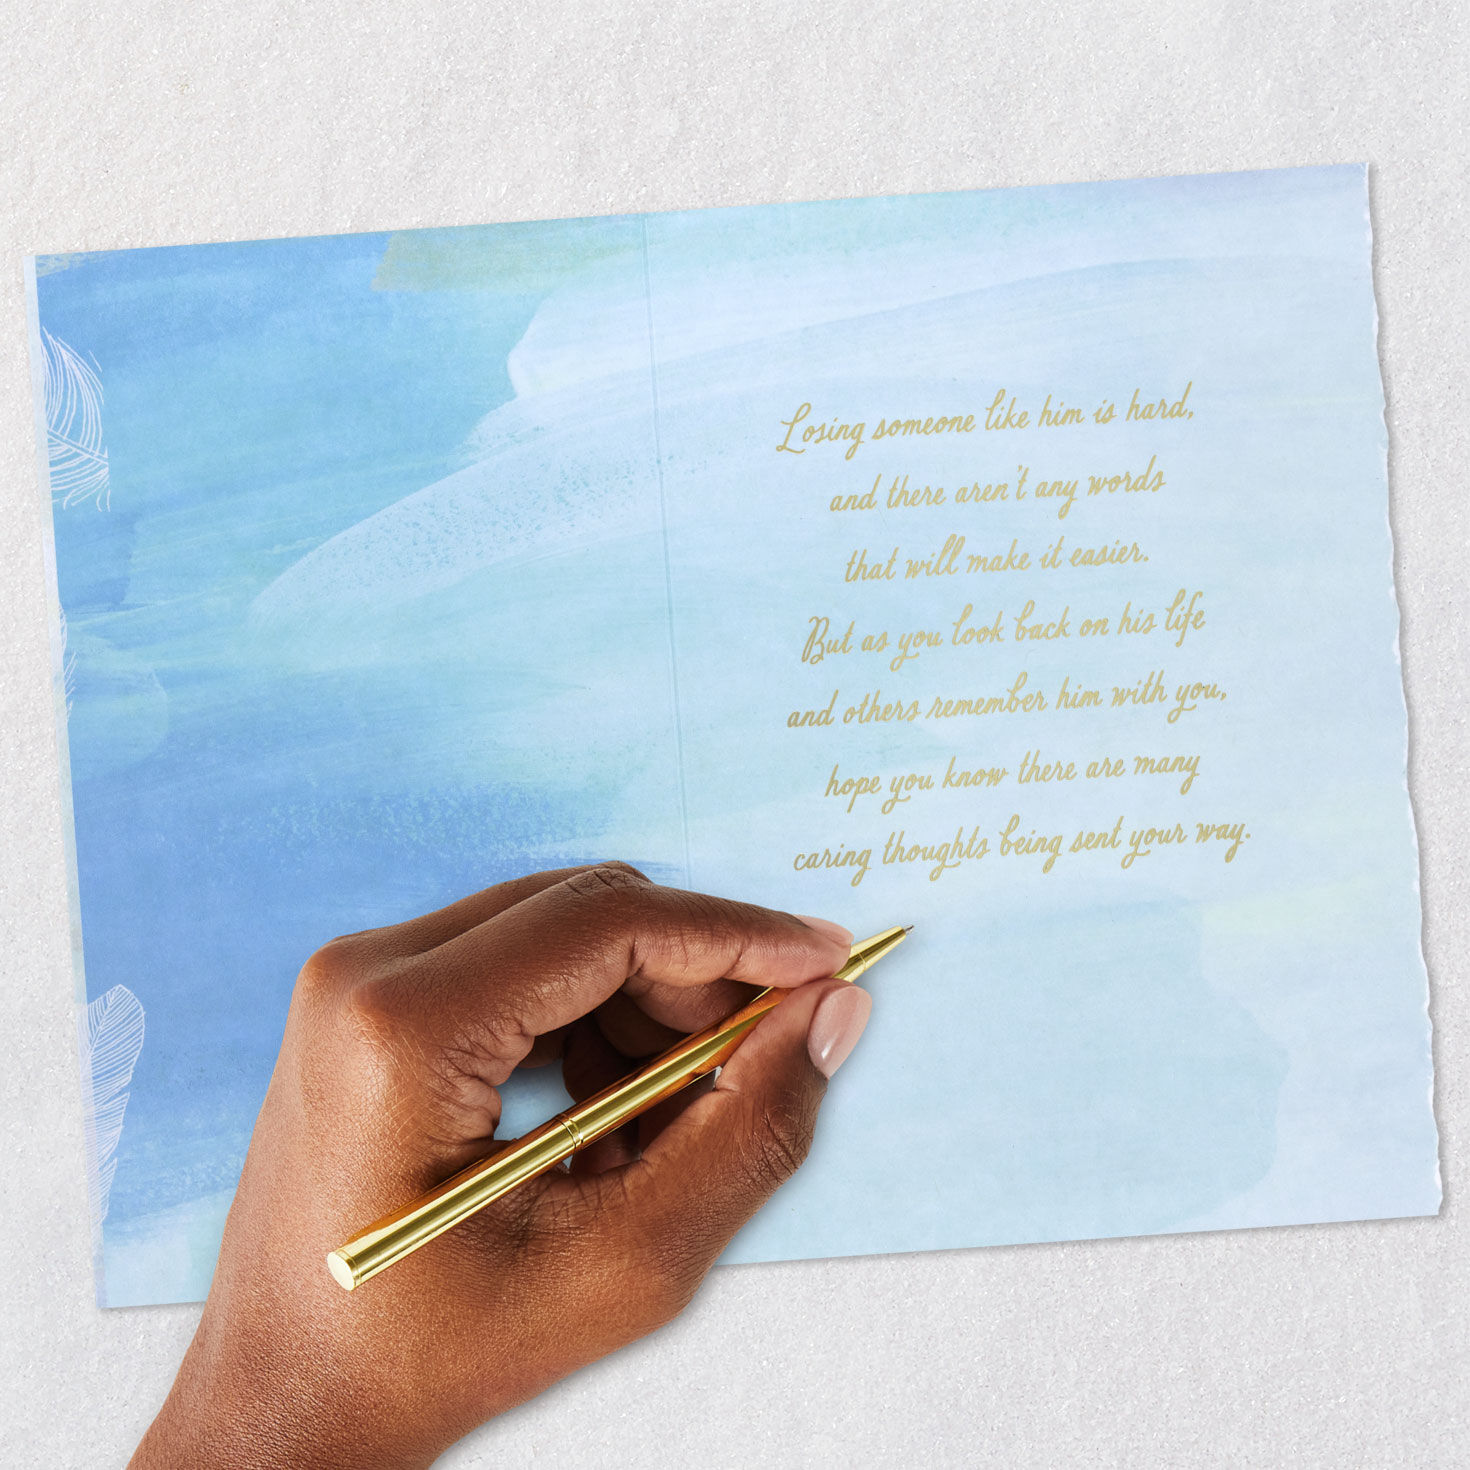 Losing someone like him is hard,
and there aren't any words
that will make it easier.
But as you look back on his life
and others remember him with you,
hope you know there are many
caring thoughts being sent your way.